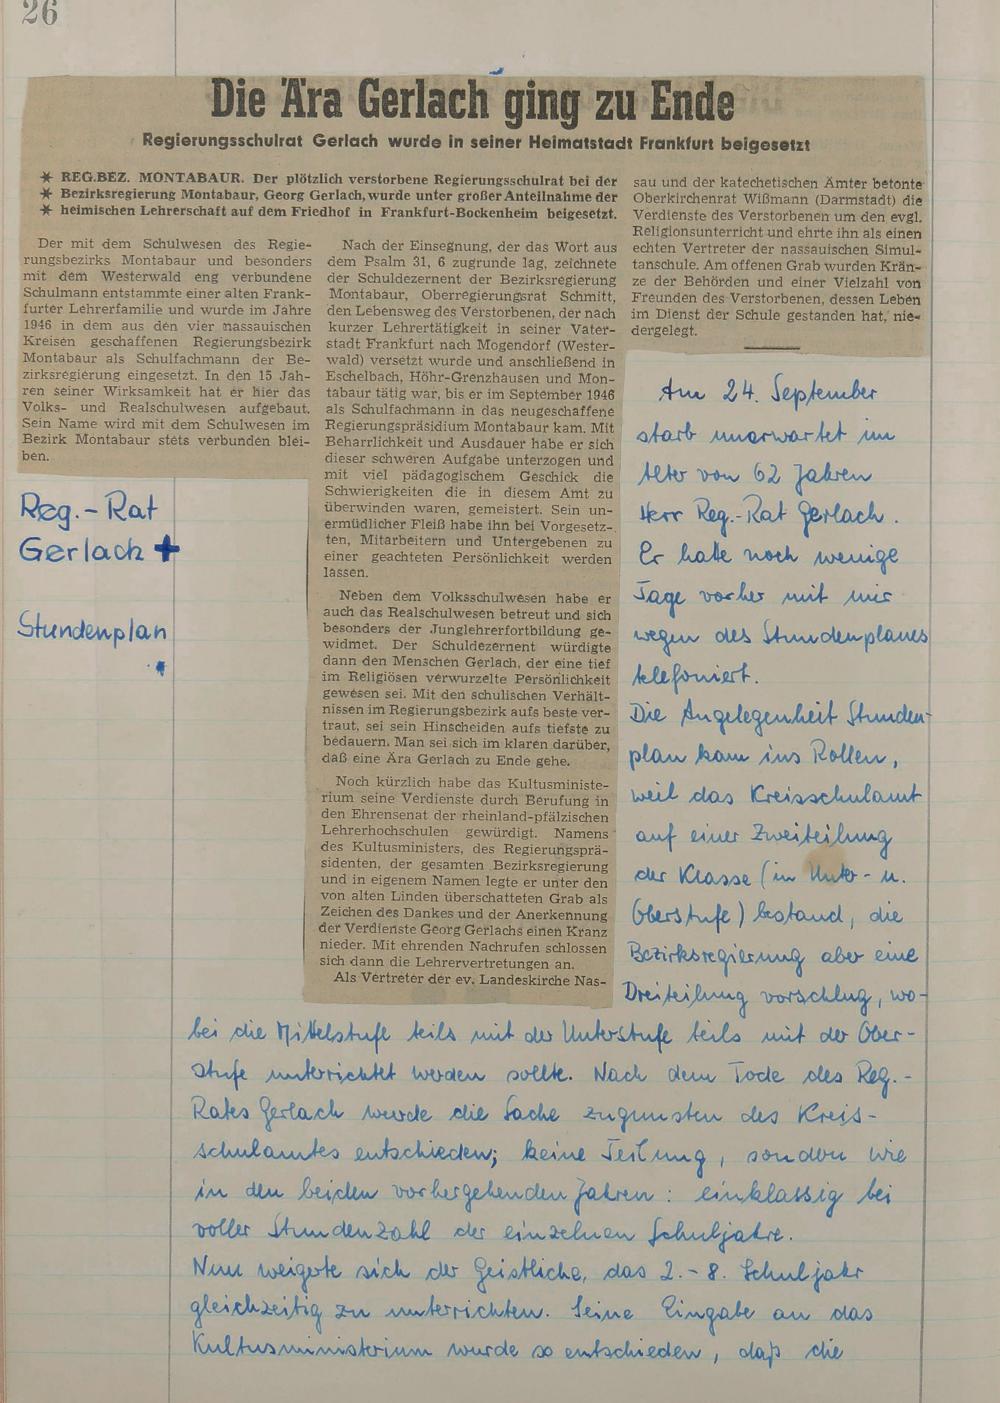 26
Die Ära Gerlach ging zu Ende
Regierungsschulrat Gerlach wurde in seiner Heimatstadt Frankfurt beigesetzt
* REG.BEZ. MONTABAUR. Der plötzlich verstorbene Regierungsschulrat bei der
* Bezirksregierung Montabaur, Georg Gerlach, wurde unter großer Anteilnahme der
* heimischen Lehrerschaft auf dem Friedhof in Frankfurt-Bockenheim beigesetzt.
Der mit dem Schulwesen des Regie-
rungsbezirks Montabaur und besonders
mit dem Westerwald eng verbundene
Schulmann entstammte einer alten Frank-
furter Lehrerfamilie und wurde im Jahre
1946 in dem aus den vier nassauischen
Kreisen geschaffenen Regierungsbezirk
Montabaur als Schulfachmann der Be-
zirksregierung eingesetzt. In den 15 Jah-
ren seiner Wirksamkeit hat er hier das
Volks- und Realschulwesen aufgebaut.
Sein Name wird mit dem Schulwesen im
Bezirk Montabaur stets verbunden blei-
ben.
Nach der Einsegnung, der das Wort aus
dem Psalm 31, 6 zugrunde lag, zeichnete
der Schuldezernent der Bezirksregierung
Montabaur, Oberregierungsrat Schmitt,
den Lebensweg des Verstorbenen, der nach
kurzer Lehrertätigkeit in seiner Vater-
stadt Frankfurt nach Mogendorf (Wester-
wald) versetzt wurde und anschließend in
Eschelbach, Höhr-Grenzhausen und Mon-
tabaur tätig war, bis er im September 1946
als Schulfachmann in das neugeschaffene
Regierungspräsidium Montabaur kam. Mit
Beharrlichkeit und Ausdauer habe er sich
dieser schweren Aufgabe unterzogen und
mit viel pädagogischem Geschick die
Schwierigkeiten die in diesem Amt zu
überwinden waren, gemeistert. Sein un-
ermüdlicher Fleiß habe ihn bei Vorgesetz-
ten, Mitarbeitern und Untergebenen zu
einer geachteten Persönlichkeit werden
lassen.
Neben dem Volksschulwesen habe er
auch das Realschulwesen betreut und sich
besonders der Junglehrerfortbildung ge-
widmet. Der Schuldezernent würdigte
dann den Menschen Gerlach, der eine tief
im Religiösen verwurzelte Persönlichkeit
gewesen sei. Mit den schulischen Verhält-
nissen im Regierungsbezirk aufs beste ver-
traut, sei sein Hinscheiden aufs tiefste zu
bedauern. Man sei sich im klaren darüber,
daß eine Ära Gerlach zu Ende gehe.
Noch kürzlich habe das Kultusministe-
rium seine Verdienste durch Berufung in
den Ehrensenat der rheinland-pfälzischen
Lehrerhochschulen gewürdigt. Namens
des Kultusministers, des Regierungsprä-
sidenten, der gesamten Bezirksregierung
und in eigenem Namen legte er unter den
von alten Linden überschatteten Grab als
Zeichen des Dankes und der Anerkennung
der Verdienste Georg Gerlachs einen Kranz
nieder. Mit ehrenden Nachrufen schlossen
sich dann die Lehrervertretungen an.
Als Vertreter der ev. Landeskirche Nas-
sau und der katechetischen Ämter betonte
Oberkirchenrat Wißmann (Darmstadt) die
Verdienste des Verstorbenen um den evgl.
Religionsunterricht und ehrte ihn als einen
echten Vertreter der nassauischen Simul-
tanschule. Am offenen Grab wurden Krän-
ze der Behörden und einer Vielzahl von
Freunden des Verstorbenen, dessen Leben
im Dienst der Schule gestanden hat, nie-
dergelegt.
Reg.-Rat
Gerlach ✝
Stundenplan
Am 24. September
starb unerwartet im
Alter von 62 Jahren
Herr Reg.-Rat Gerlach.
Er hatte noch wenige
Tage vorher mit mir
wegen des Stundenplanes
telefoniert.
Die Angelegenheit Stunden-
plan kam ins Rollen,
weil das Kreisschulamt
auf einer Zweiteilung
der Klasse (in Unter- u.
Oberstufe) bestand, die
Bezirksregierung aber eine
Dreiteilung vorschlug, wo-
bei die Mittelstufe teils mit der Unterstufe teils mit der Ober-
stufe unterrichtet werden sollte. Nach dem Tode des Reg.-
Rates Gerlach wurde die Sache zugunsten des Kreis-
schulamtes entschieden; keine Teilung, sondern wie
in den beiden vorhergehenden Jahren: einklassig bei
voller Stundenzahl der einzelnen Schuljahre.
Nun weigerte sich der Geistliche, das 2.-8. Schuljahr
gleichzeitig zu unterrichten. Seine Eingabe an das
Kultusministerium wurde so entschieden, daß die